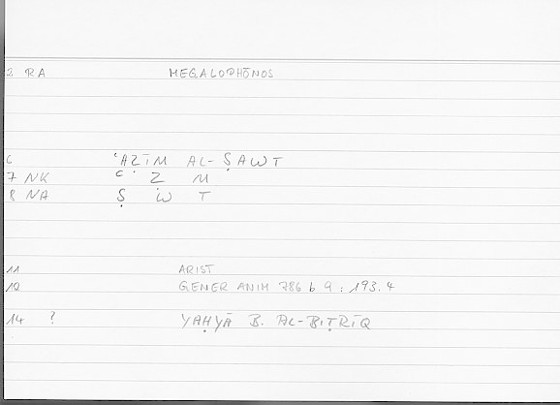 3 RA MEGALOPHŌNOS
6 ʿAẒĪM AL-ṢAWT
7 NK ʿ Ẓ M
8 NA Ṣ W T
11 ARIST
12 GENER ANIM 786 b 9 : 193.4
14 ? YAḤYĀ B. AL-BIṬRĪQ